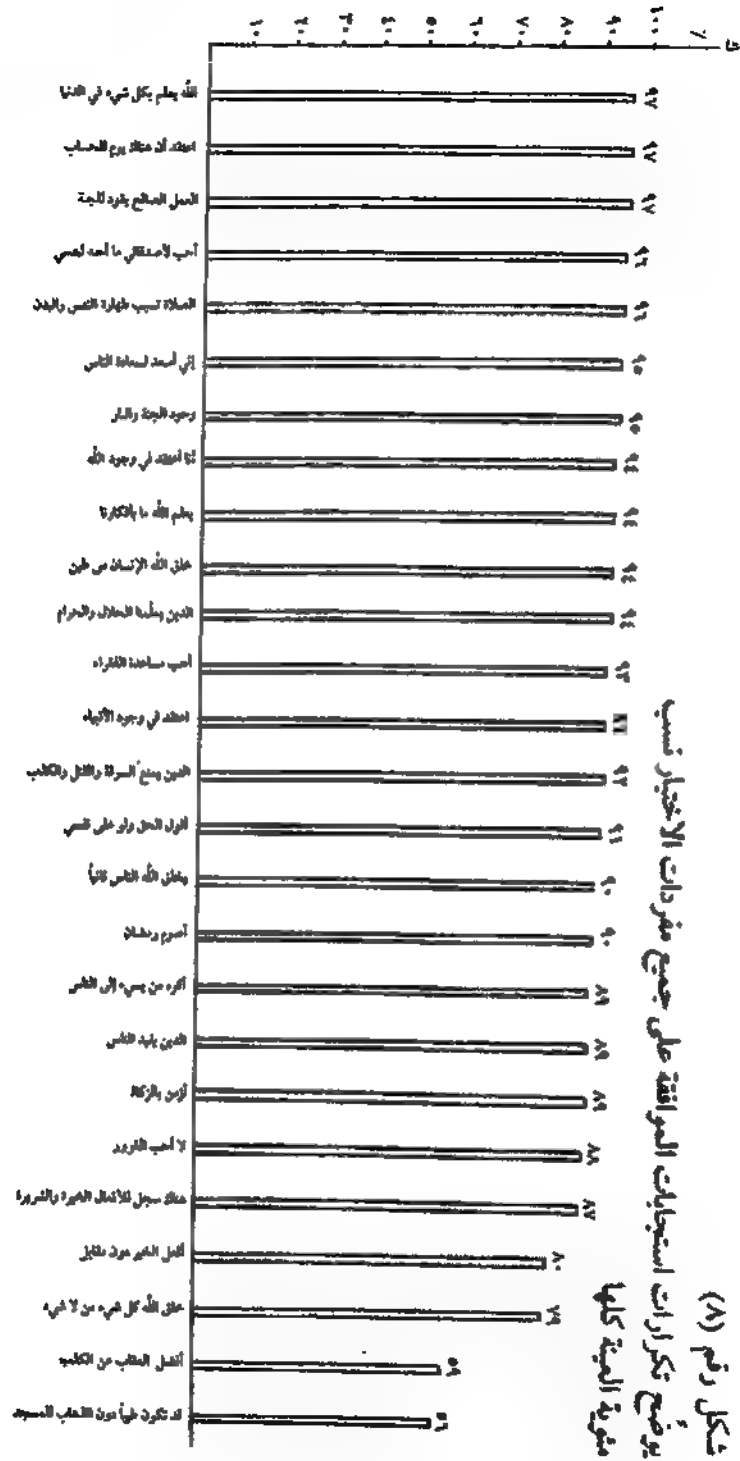 شكل رقم (٨)
يوضح تكرارات استجابات الموافقة على جميع مفردات الاختبار نسب
مئوية العينة كلها
ك
٪
١٠٠
٩٠
٨٠
٧٠
٦٠
٥٠
٤٠
٣٠
٢٠
١٠
الله يعلم بكل شيء في الدنيا
٩٧
اعتقد أن هناك يوم للحساب
٩٧
العمل الصالح يقود للجنة
٩٧
أحب لأصدقائي ما أحبه لنفسي
٩٦
الصلاة تسبب طهارة النفس والبدن
٩٦
إني أسعد لسعادة الناس
٩٥
وجود الجنة والنار
٩٥
أنا أعتقد في وجود الله
٩٤
يعلم الله ما بأفكارنا
٩٤
خلق الله الإنسان من طين
٩٤
الدين يعلمنا الحلال والحرام
٩٤
أحب مساعدة الفقراء
٩٣
اعتقد في وجود الأنبياء
الدين يمنع السرقة والقتل والكذب
٩٢
أقول الحق ولو على نفسي
٩١
يخلق الله الناس ثانياً
٩٠
أصوم رمضان
٩٠
أكره من يسيء إلى الناس
٨٩
الدين يفيد الناس
٨٩
أؤمن بالزكاة
٨٩
لا أحب الغرور
٨٨
هناك سجل للأفعال الخيرة والشريرة
٨٧
أفعل الخير دون مقابل
٨٠
خلق الله كل شيء من لا شيء
٧٩
أفضل العقاب عن الكذب
٥٦
قد تكون طيباً دون الذهاب للمسجد